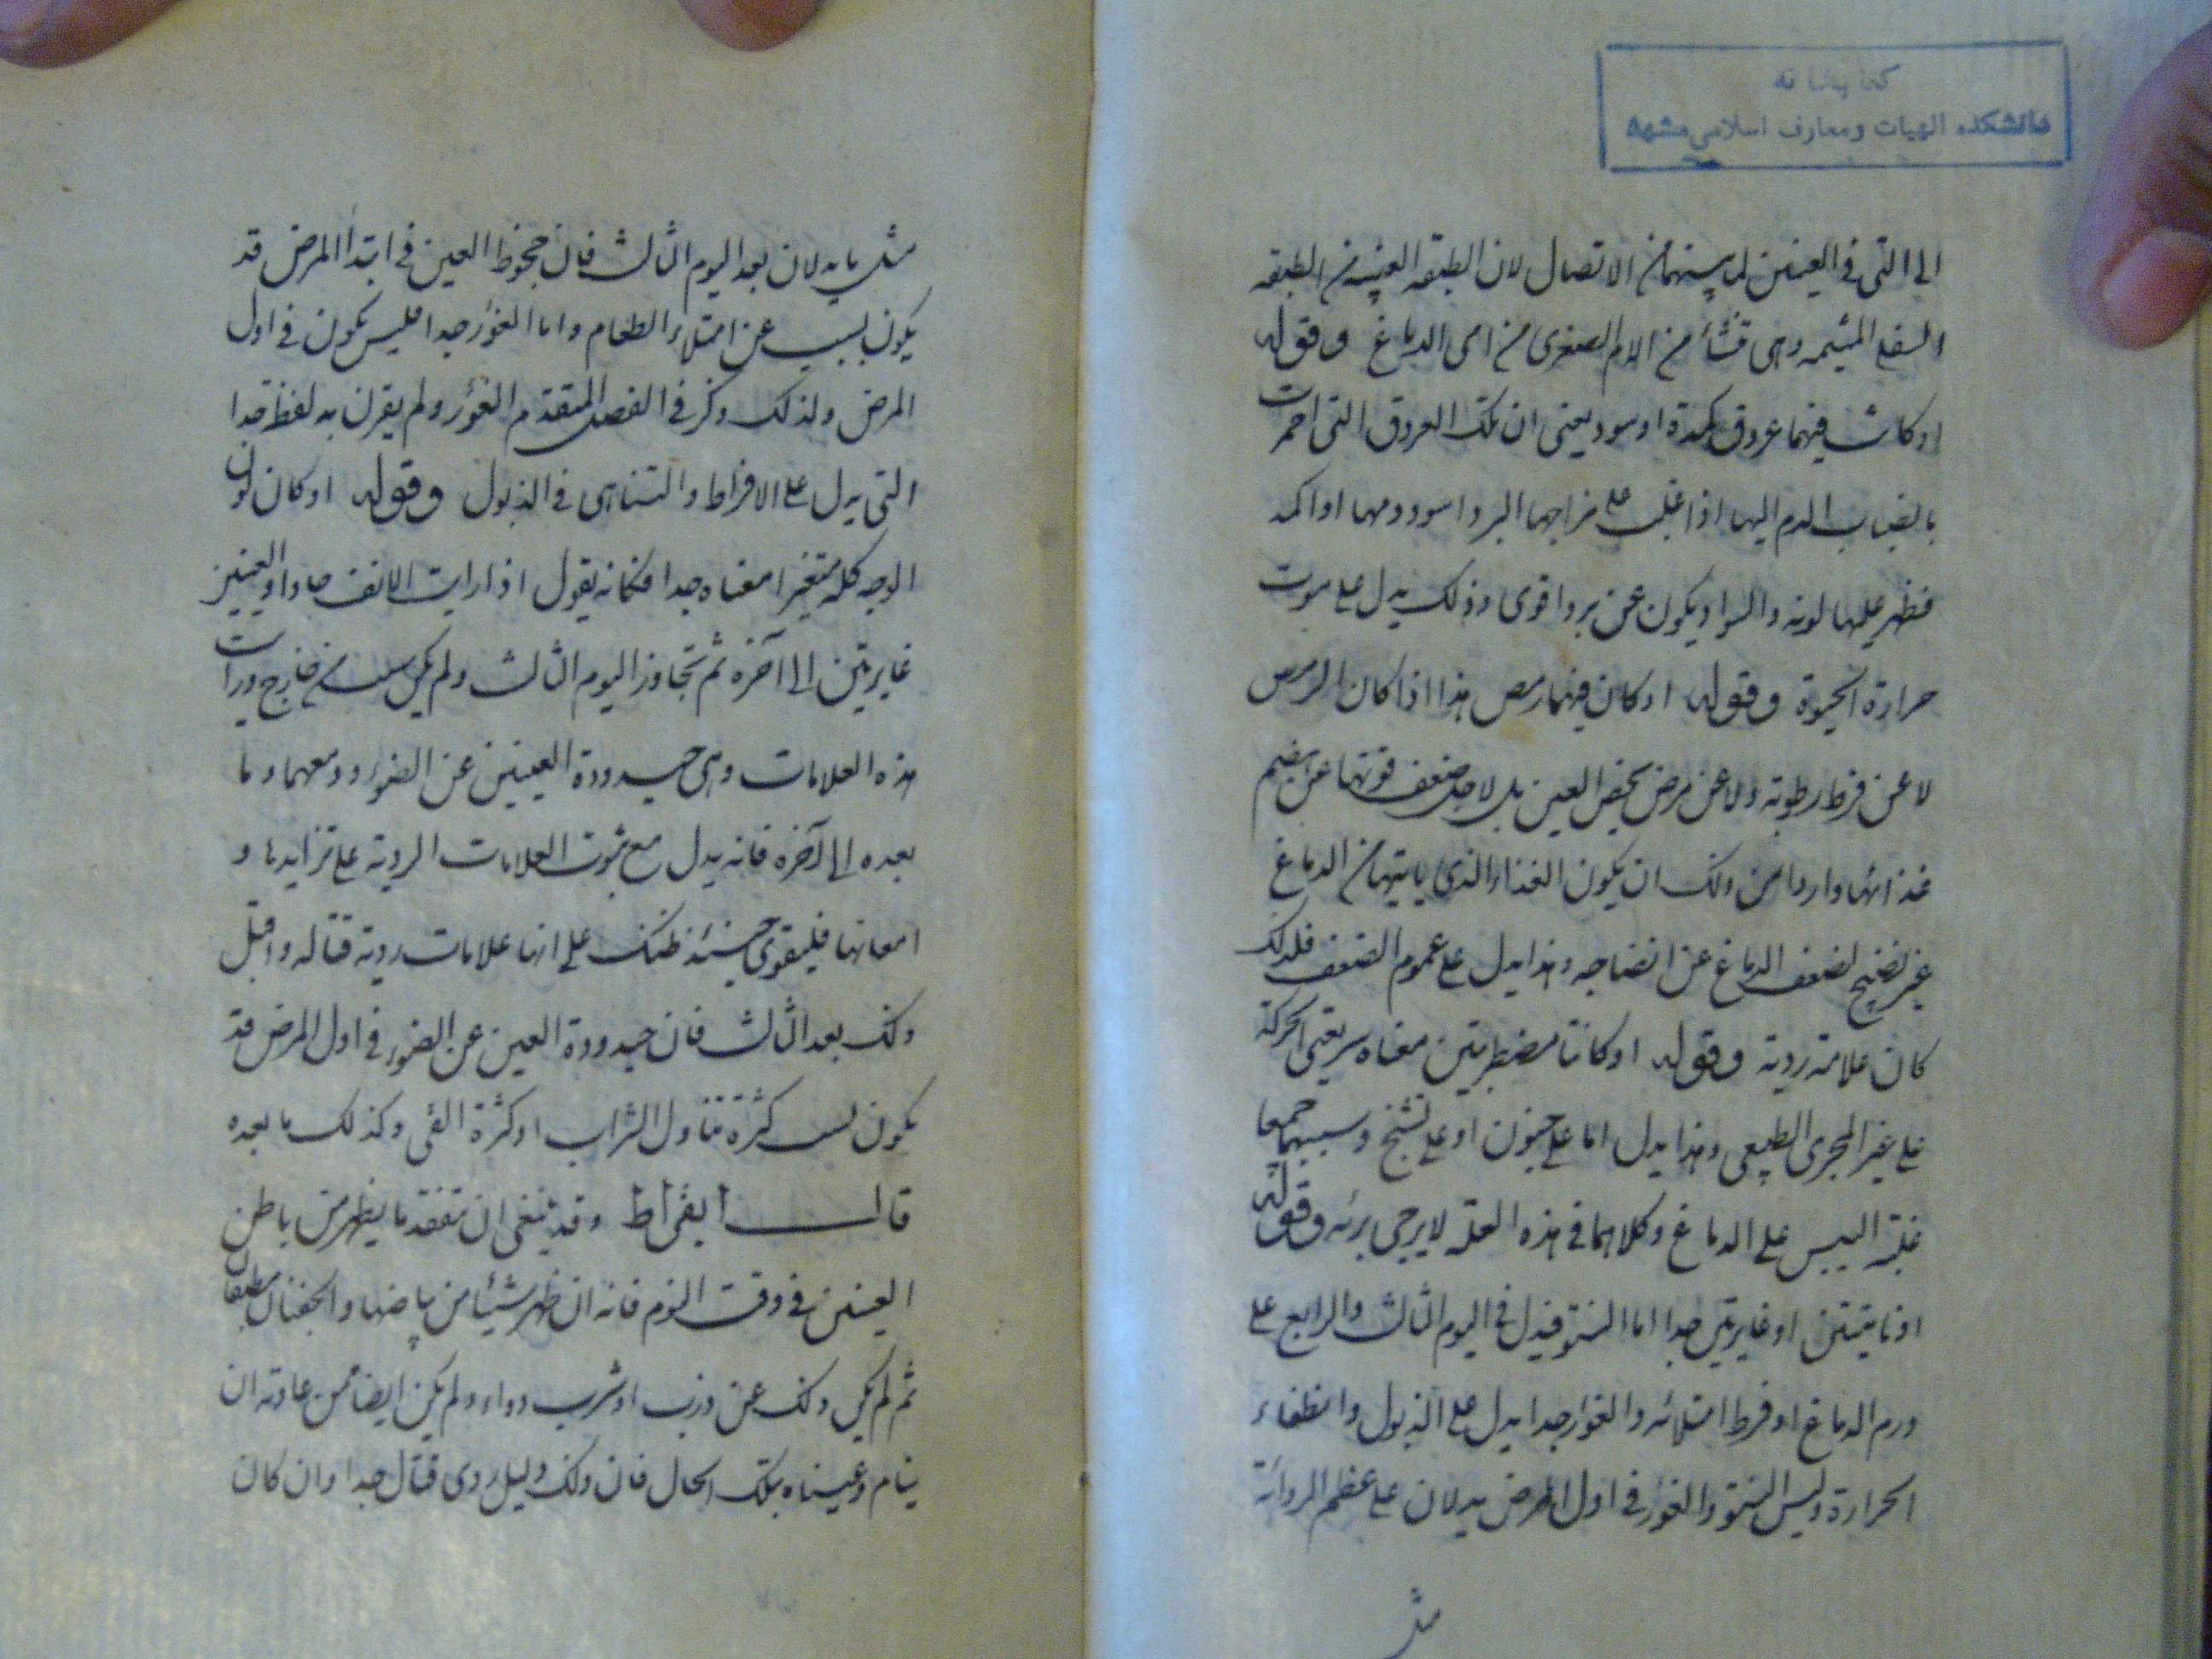 كتابخانه
دانشكده الهيات ومعارف اسلامى مشهد
الى التى فى العينين لما بينهما من الاتصال لان الطبقه العنبيه من الطبقه
السفلى المشيمه وهى تنشأ من الام الصغرى من امى الدماغ وقوله
او كانت فيهما عروق كمدة او سود يعنى ان تلك العروق التى احمرت
بانصباب الدم اليها اذا غلب على مزاجها البرد اسود دمها او اكمد
فظهر عليها لونه والسواد يكون عن برد اقوى وذلك يدل على موت
حرارة الحيوة وقوله او كان فيهما رمص هذا اذا كان الرمص
لا عن فرط رطوبته ولا عن مرض يخص العين بل لاجل ضعف قوتها عن هضم
غذائها واردا من ذلك ان يكون الغذاء الذى ياتيها من الدماغ
غير نضيج لضعف الدماغ عن انضاجه وهذا يدل على عموم الضعف فلذلك
كان علامة ردية وقوله او كانتا مضطربتين معناه سريعتى الحركة
على غير المجرى الطبيعى وهذا يدل اما على جنون او على تشنج وسببهما جميعا
غلبة اليبس على الدماغ وكلاهما فى هذه العلة لا يرجى برئه وقوله
او ناتيتين او غايرتين جدا اما النتو فيدل فى اليوم الثالث والرابع على
ورم الدماغ او فرط امتلائه والغور جدا يدل على الذبول وانطفاء
الحرارة وليس النتو والغور فى اول المرض يدلان على عظم الردائة
مثل
مثل ما يدلان بعد اليوم الثالث فان جحوظ العين فى ابتدأ المرض قد
يكون بسبب عن امتلاء الطعام واما الغور جدا فليس يكون فى اول
المرض ولذلك ذكر فى الفصل المتقدم الغور ولم يقرن به لفظة جدا
التى يدل على الافراط والتناهى فى الذبول وقوله او كان لون
الوجه كله متغيرا معناه جدا فكانه يقول اذا رايت الانف حادا والعينين
غايرتين الى آخره ثم تجاوز اليوم الثالث ولم يكن من خارج ورأت
هذه العلامات وهى حيدودة العينين عن الضوء ودمعهما وما
بعده الى آخره فانه يدل مع ثبوت العلامات الردية على تزايدها و
امعانها فليقوى حينئذ ظنك على انها علامات ردية قتالة واقبل
ذلك بعد الثالث فان حيدودة العين عن الضوء فى اول المرض قد
يكون لسبب كثرة تناول الشراب او كثرة القى وكذلك ما بعده
قال ابقراط وقد ينبغى ان تتفقد ما يظهر من باطن
العينين فى وقت النوم فانه ان ظهر شيئا من بياضها والجفنان مطبقان
ثم لم يكن ذلك عن ذرب او شرب دواء ولم يكن ايضا من عادته ان
ينام وعيناه بتلك الحال فان ذلك دليل ردى قتال جدا وان كان